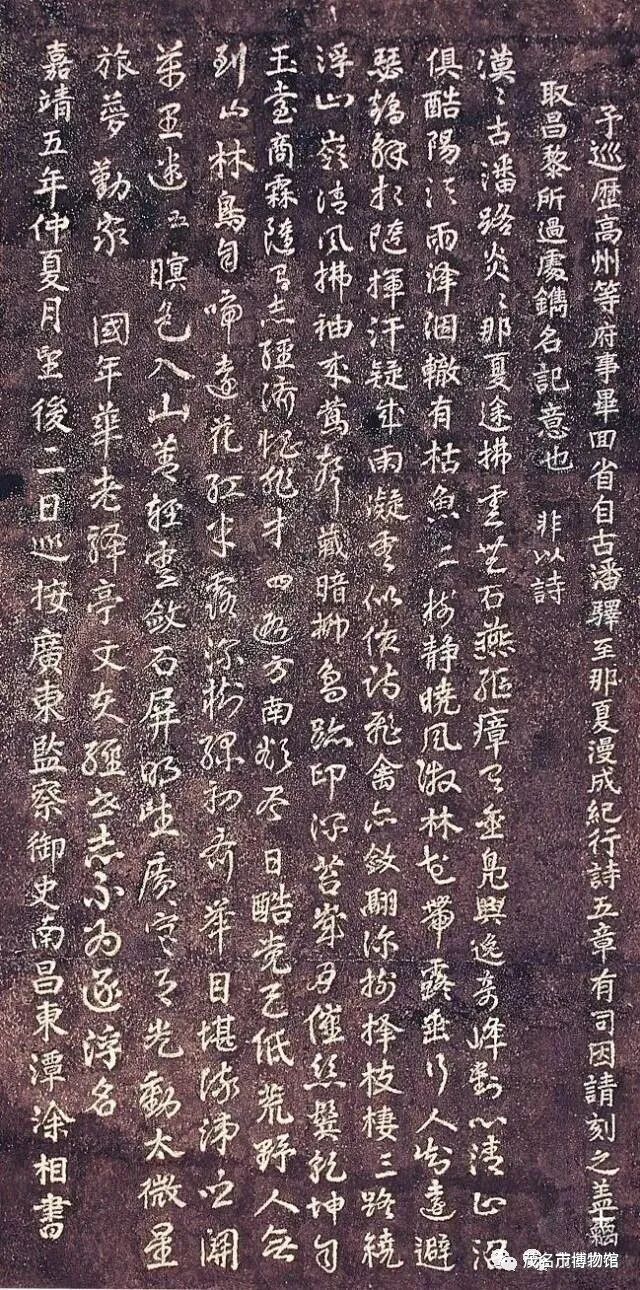 予巡歷高州等府事畢回省自古潘驛至那夏漫成紀行詩五章有司因請刻之盖竊
取昌黎所過處鐫名記意也 非以詩
漠〻古潘路炎〻那夏途拂雲無石燕驅瘴有鳧興逸奇峰對心清止沼
俱酷陽雨澤涸轍有枯魚二 樹静曉風微林花帶露垂行人知遠避
解相隨揮汗疑成雨凝雲似候詩飛禽亦斂翮深樹擇枝棲三 路繞
浮山嶺清風拂袖来鶯聲藏暗柳鳥跡印深苔歲月催絲鬢乾坤自
玉臺商霖隨馬志經濟愧非才 四 方南日酷低荒野人無
到山林鳥自啼遠花紅半露深樹綠初齊華日堪流涕
萬里迷 五 暝色入山青輕雲斂石屏明光動太微星
旅夢勤家 國年華老驛亭文友經世志不為逐浮名
嘉靖五年仲夏月望後二日巡按廣東監察御史南昌東潭涂相書
茂名市博物馆